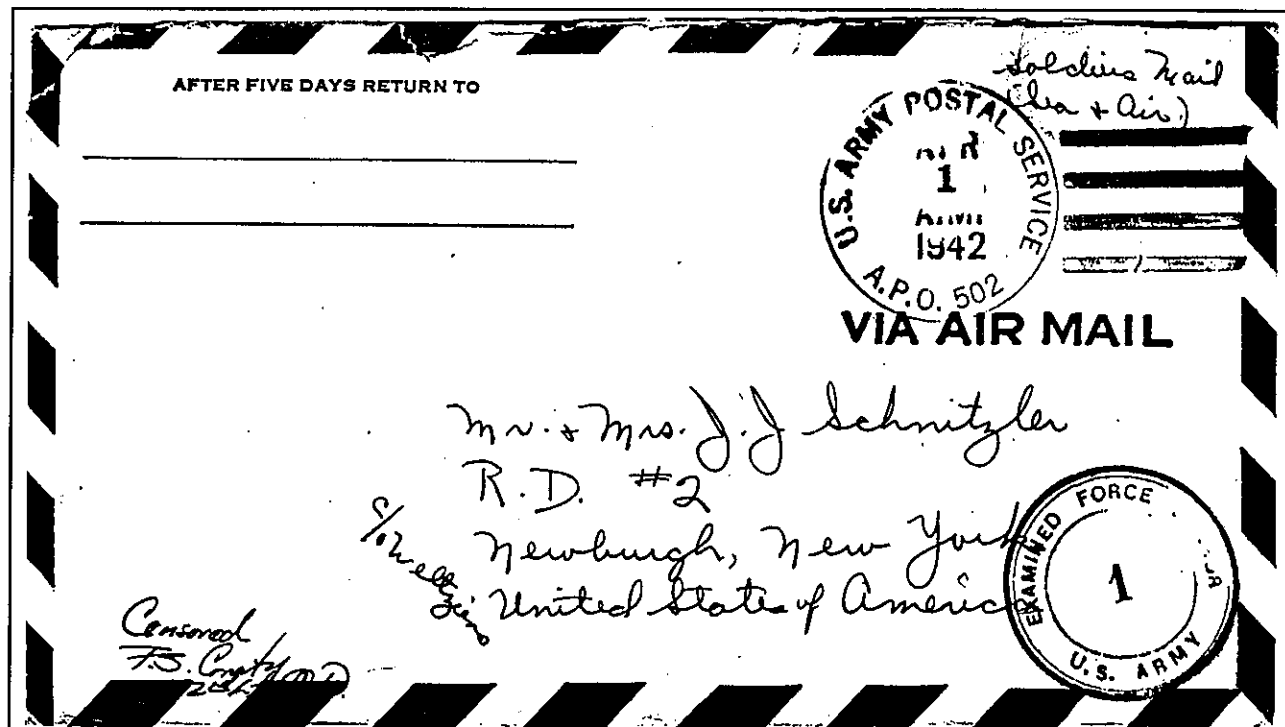 AFTER FIVE DAYS RETURN TO
Soldiers Mail
(Sea & Air)
U.S. ARMY POSTAL SERVICE
1
1942
A.P.O. 502
VIA AIR MAIL
Mr. & Mrs. J. J Schnitzler
R.D. #2
Newburgh, New York
United States of America
c/o
Censored
EXAMINED FORCE
1
U.S. ARMY